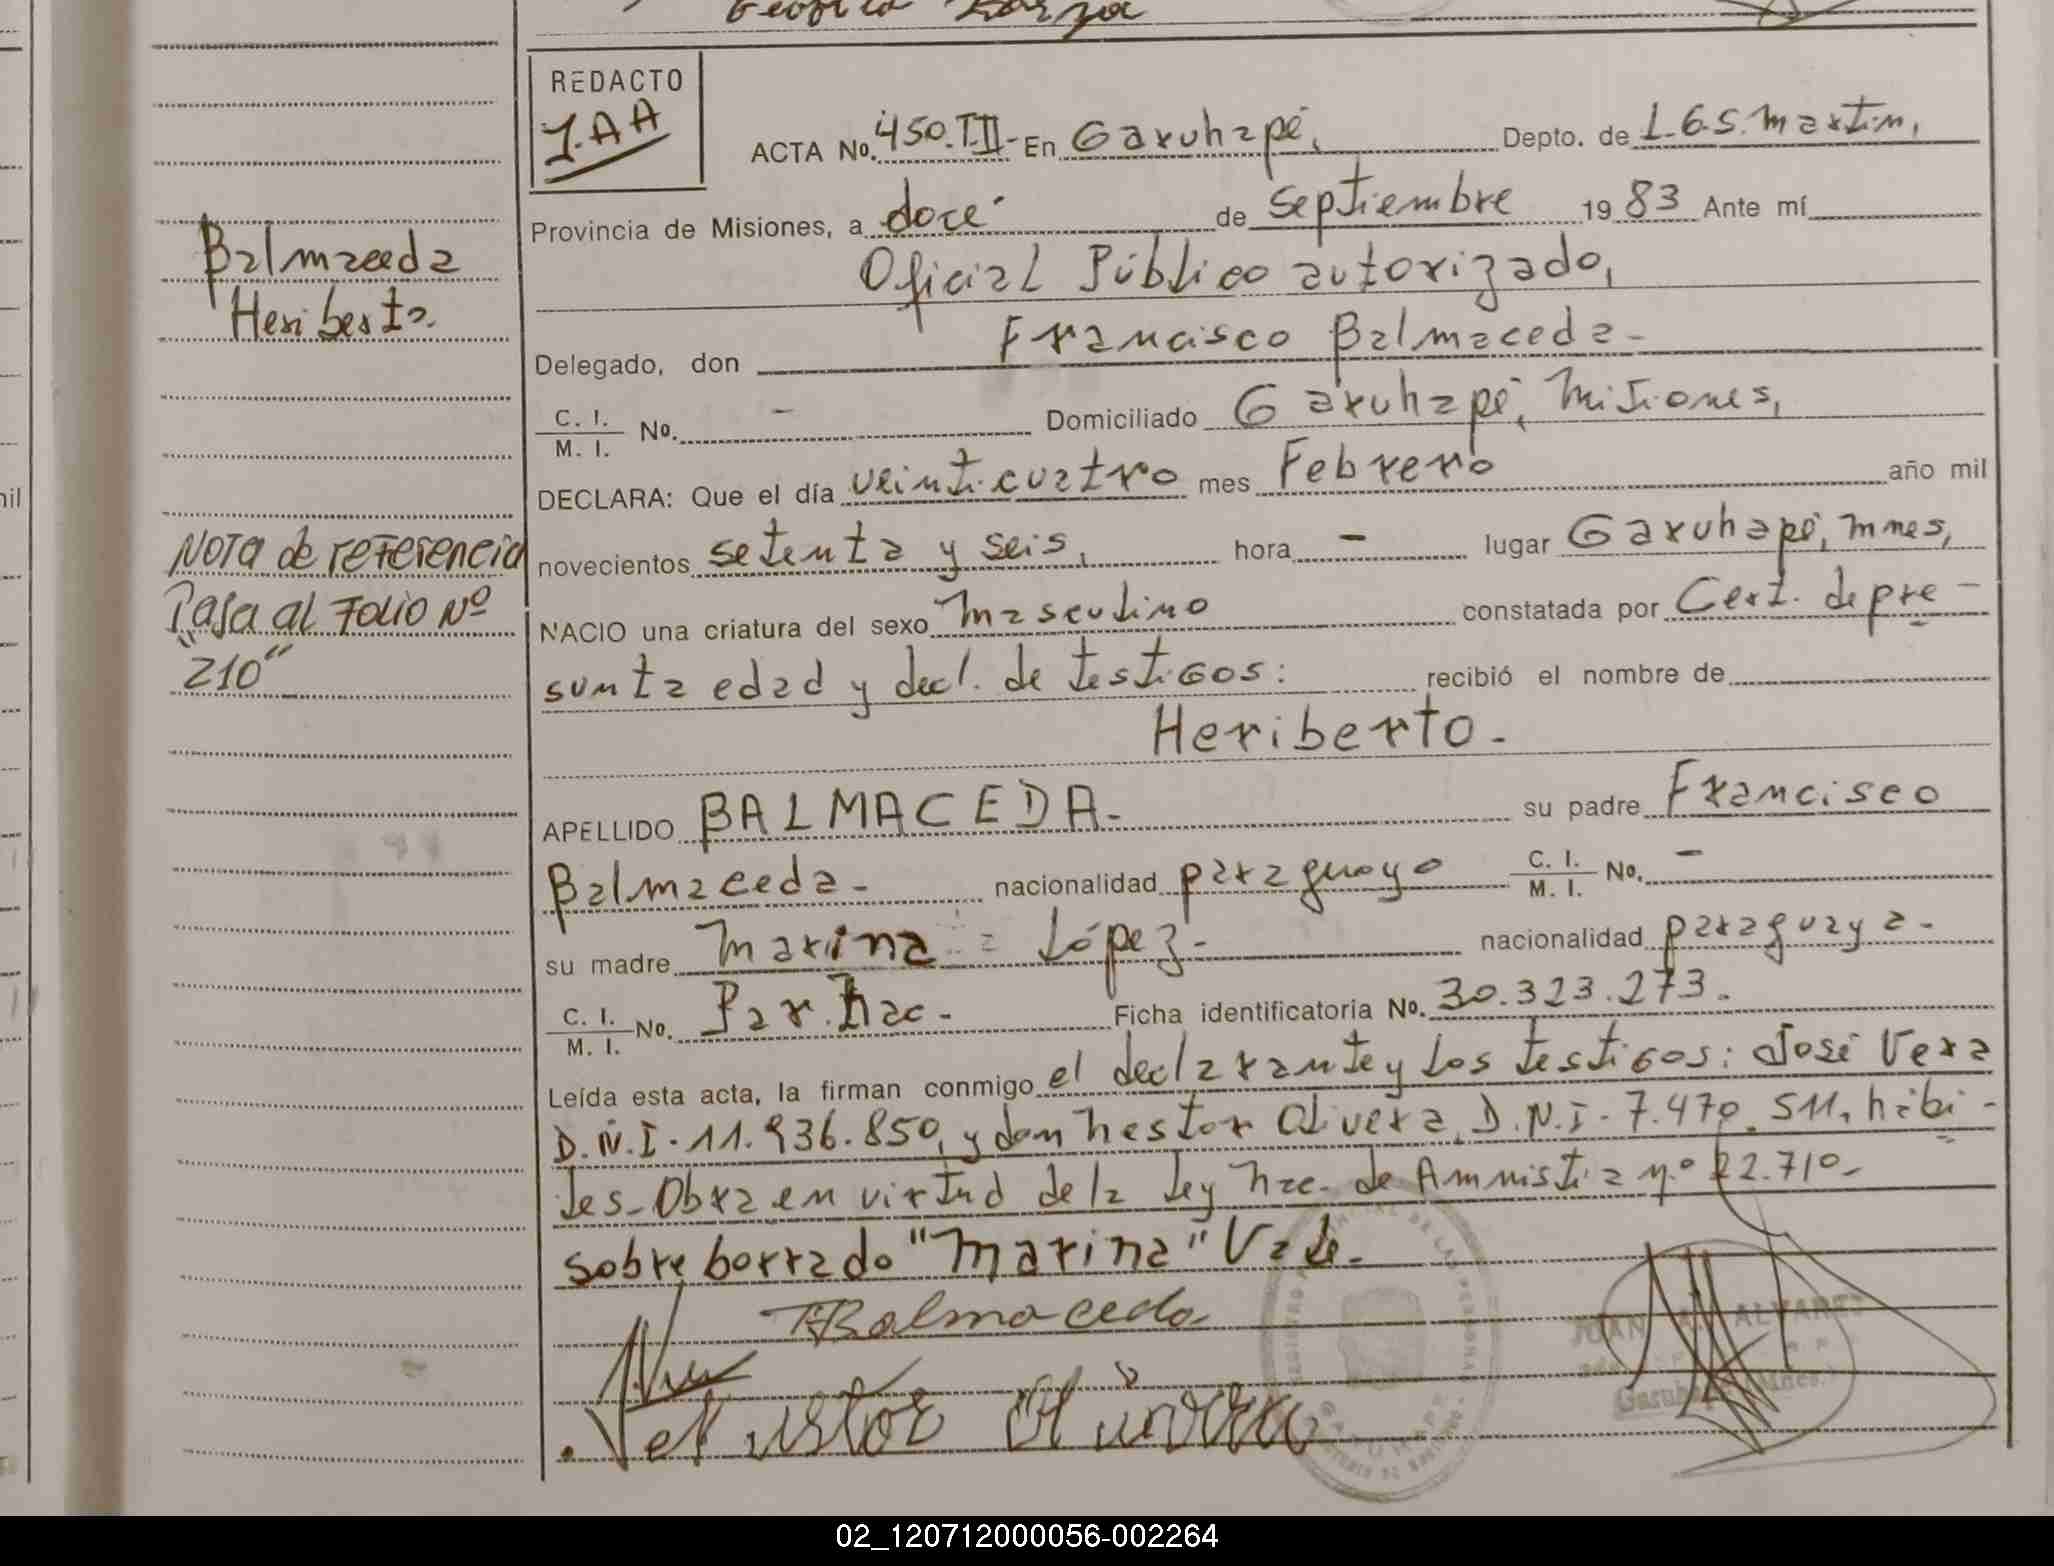 REDACTO
J.AA
ACTA No. 450.T.II- En Garuhapé, Depto. de L.G.S. Martin,
Provincia de Misiones, a doce de septiembre 1983 Ante mí
Oficial Público autorizado,
Delegado, don Francisco Balmaceda-
C. I. / M. I. No. - Domiciliado Garuhapé, Misiones,
DECLARA: Que el día veinticuatro mes Febrero año mil
novecientos setenta y seis, hora - lugar Garuhapé, Mnes,
NACIO una criatura del sexo masculino constatada por Cert. de pre-
sunta edad y decl. de testigos: recibió el nombre de
Heriberto.-
APELLIDO BALMACEDA.- su padre Francisco
Balmaceda- nacionalidad paraguayo C. I. / M. I. No. -
su madre Marina López- nacionalidad paraguaya-
C. I. / M. I. No. Ficha identificatoria No. 30.323.273.
Leída esta acta, la firman conmigo el declarante y los testigos: José Vera
D.N.I. 11.936.850, y don Nestor Olivera, D.N.I. 7.470.511, hábi-
les- Obra en virtud de la Ley Nac. de Amnistia n.º 22.710-
sobre borrado "Marina" Vale-
Balmaceda
Balmaceda
Heriberto.
Nota de referencia
Pasa al Folio Nº
"210"
JUAN A. ALVAREZ
02_120712000056-002264